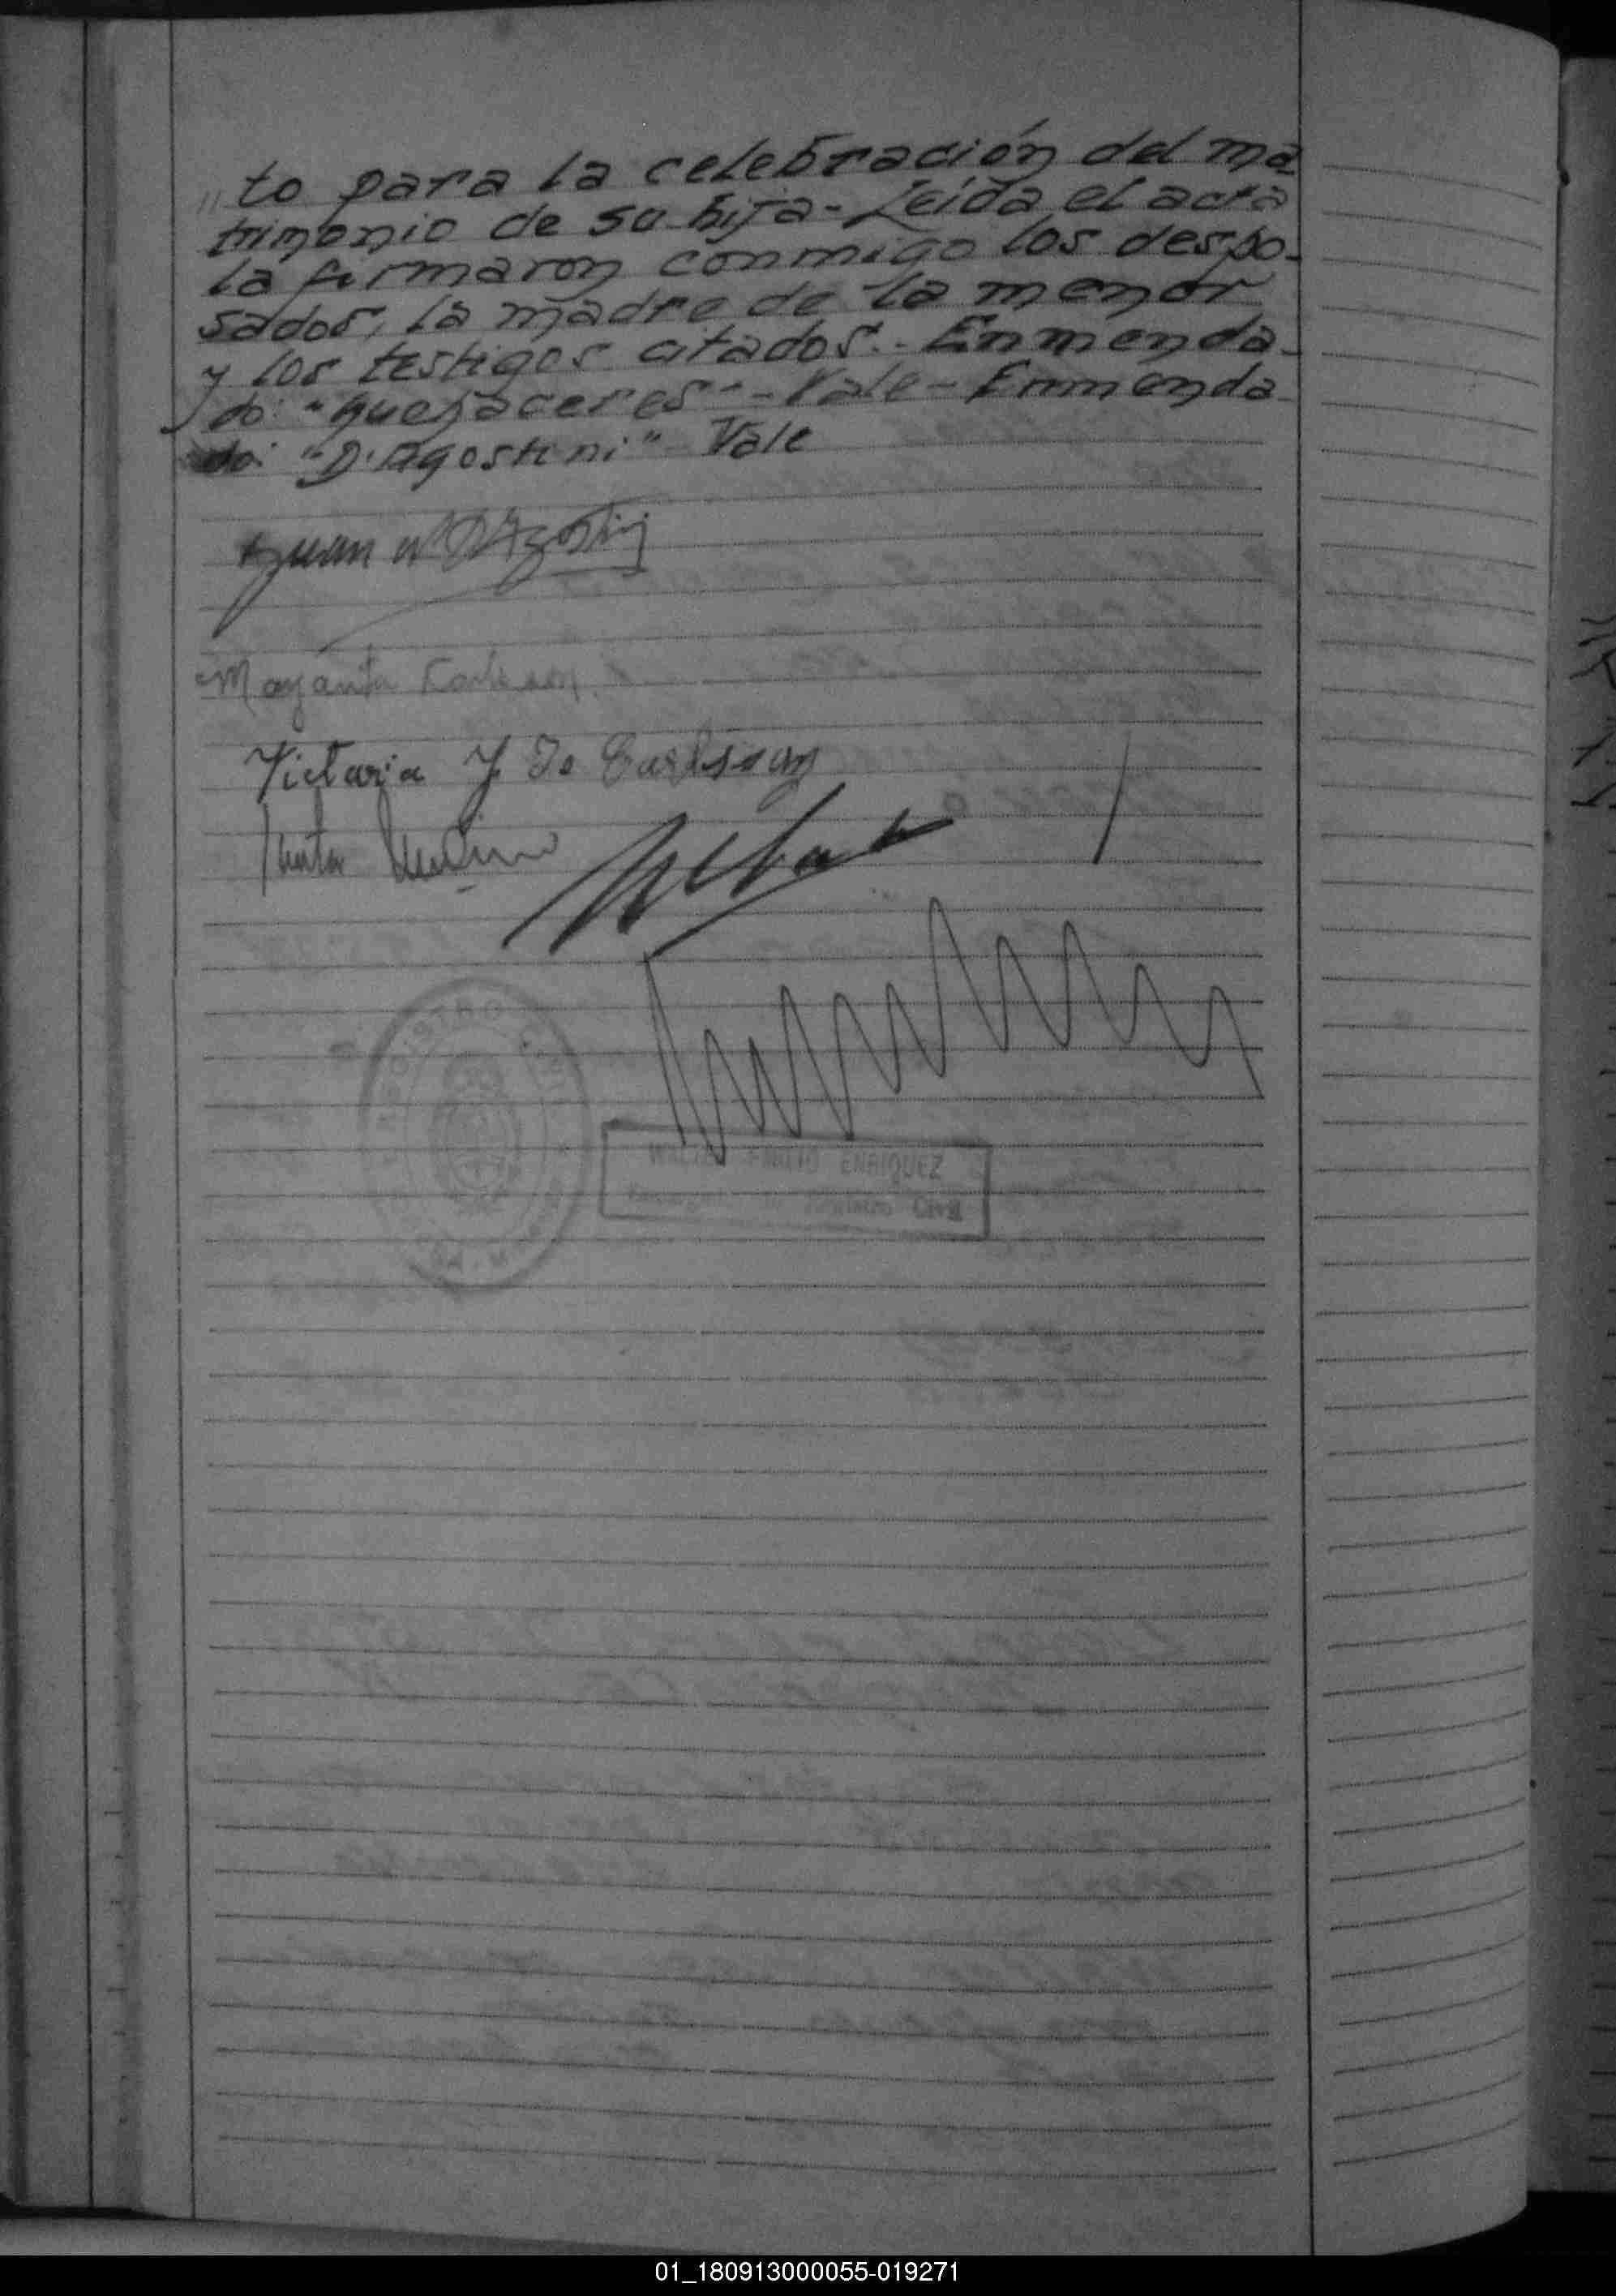 "to para la celebración del ma
trimonio de su hija - Leída el acta
la firmaron conmigo los despo-
sados, la madre de la menor
y los testigos citados.- Enmenda-
do: "quehaceres" - Vale - Enmenda
do: "D'Agostini" Vale
Juan
Victoria Y de Carlsson
REGISTRO CIVIL
EMILIO ENRIQUEZ
Civil
01_180913000055-019271